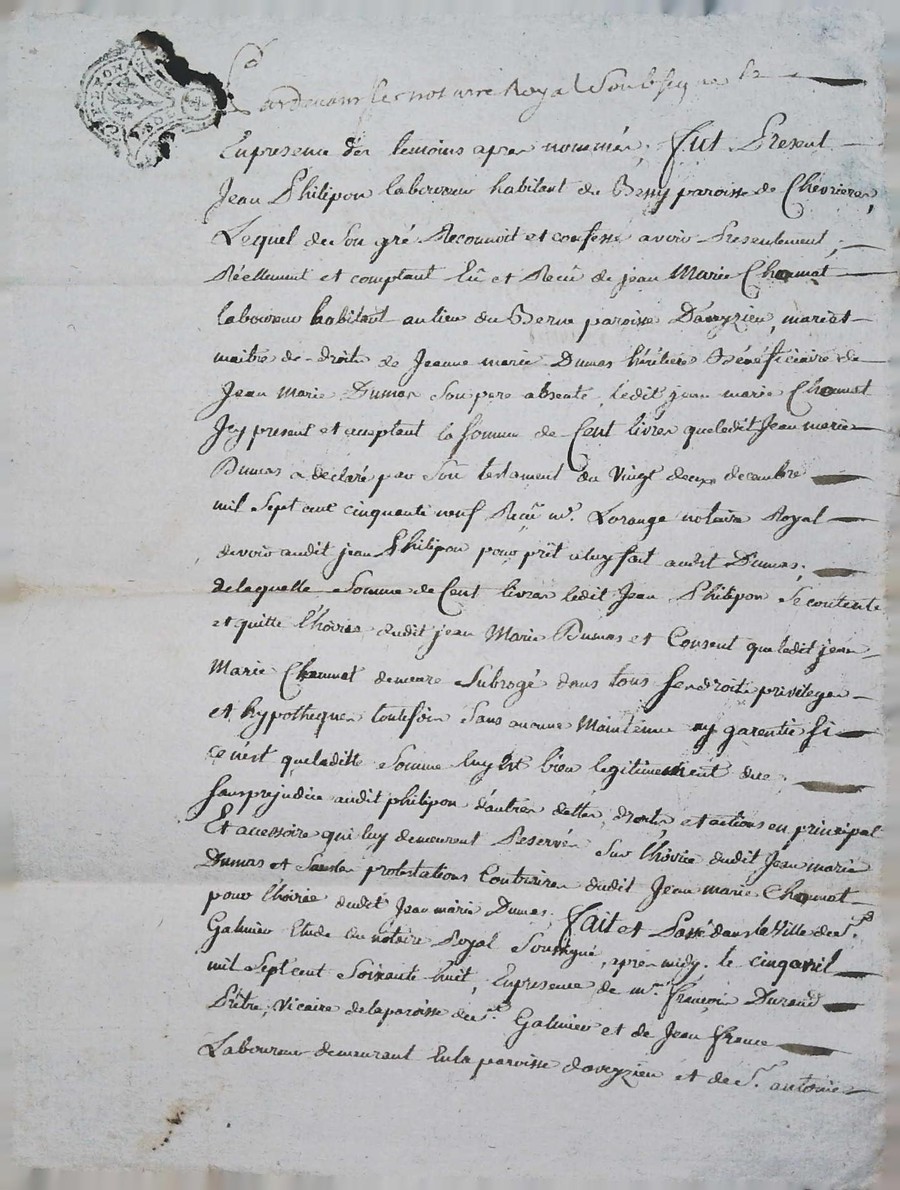 Pardevant le notaire Royal Soubsigné &
En presence des temoins apres nommés, Fut Present
Jean Philipon laboureur habitant de Bessy paroisse de Chevrieres,
Lequel de Son gré Reconnoit et confesse avoir Presentement,
Réellement et comptant Eû et Recû de jean Marie Chaumat
laboureur habitant au lieu du Berne paroisse D'aveyzieu, mari et
maitre de droits de Jeanne marie Dumas héritière Bénéficiaire de
Jean Marie Dumas Son pere absente, ledit jean marie Chaumat
Jcy present et acceptant la Somme de Cent livres queledit Jean marie
Dumas a déclaré par Son testament du Vingt deux decembre
mil Sept cent cinquante neuf Recû me. Lorange notaire Royal
devoir audit jean Philipon pour prêt a luy fait audit Dumas;
de laquelle Somme de Cent livres ledit Jean Philipon Se contente
et quitte l'hoirie dudit jean Marie Dumas et Consent queledit jean
Marie Chaumat demeure Subrogé dans tous Ses droits privileges
et hypotheques toutefois Sans aucune Maintenue ny garentie Si
ce n'est queladitte Somme luy est bien legitimement due;
Sans prejudice audit philipon d'autres dettes, droits et actions en principal
Et accessoire qui luy demeurent Reservés Sur l'hoirie dudit Jean marie
Dumas et Sauf les protestations Contraires dudit Jean marie Chaumat
pour l'hoirie dudit Jean marie Dumas. Fait et Passé dans la Ville de St.
Galmier Etude du notaire Royal Soussigné, apres midy. le cinq avril
mil Sept cent Soixante huit, En presence de mre. françois Durand
Prêtre, Vicaire de la paroisse de St. Galmier et de Jean france
Laboureur demeurant En la paroisse d'aveyzieu et de Sr. antoine